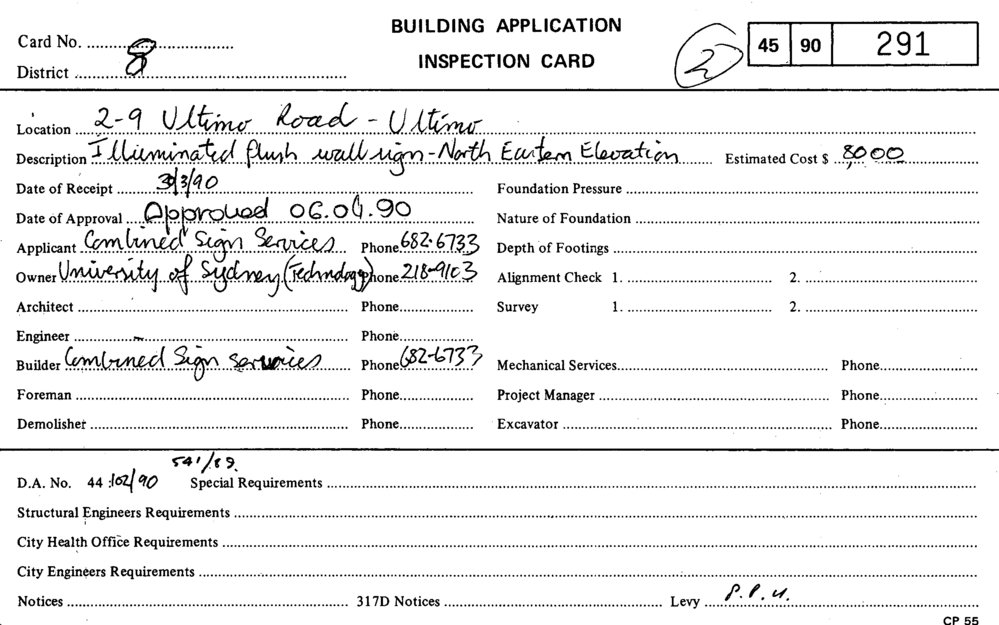 BUILDING APPLICATION
INSPECTION CARD
Card No. 8
District
2
45 90 291
Location 2-9 Ultimo Road - Ultimo
Description Illuminated flush wall sign - North Eastern Elevation Estimated Cost $ 8000
Date of Receipt /3/90 Foundation Pressure
Date of Approval Approved 06.04.90 Nature of Foundation
Applicant Combined Sign Services Phone 682-6733 Depth of Footings
Owner University of Sydney (Technology) Phone 218-9103 Alignment Check 1. 2.
Architect Phone Survey 1. 2.
Engineer Phone
Builder Combined Sign services Phone 682-6733 Mechanical Services Phone
Foreman Phone Project Manager Phone
Demolisher Phone Excavator Phone
541/89.
D.A. No. 44:102/90 Special Requirements
Structural Engineers Requirements
City Health Office Requirements
City Engineers Requirements
Notices 317D Notices Levy
CP 55